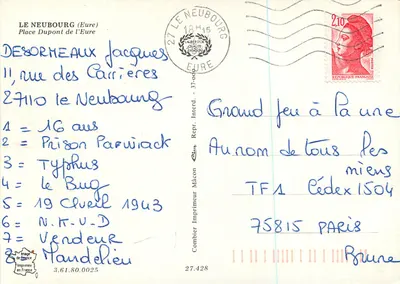 LE NEUBOURG (Eure)
Place Dupont de l'Eure
DESORMEAUX Jacques
11, rue des Carrières
27110 le Neubourg
1 = 16 ans
2 = Prison Pawirack
3 = Typhus
4 = le Bug
5 = 19 Avril 1943
6 = N.K.V.D
7 = Vendeur
8 = Mandelieu
3.61.80.0025
27.428
Combier Imprimeur Mâcon
Repr. Interd.
27 LE NEUBOURG
EURE
2,10
Grand jeu à la une
Au nom de tous les
miens
TF1 Cédex 1504
75815 PARIS
Brune